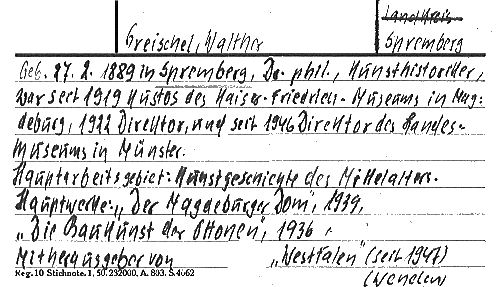 Landkreis
Greischel, Walther Spremberg
Geb. 27. 2. 1889 in Spremberg, Dr. phil., Kunsthistoriker,
war seit 1919 Kustos des Kaiser-Friedrich-Museums in Mag-
deburg, 1922 Direktor, und seit 1946 Direktor des Landes-
museums in Münster.
Hauptarbeitsgebiet: Kunstgeschichte des Mittelalters.
Hauptwerke: „Der Magdeburger Dom", 1939,
„Die Baukunst der Ottonen", 1936,
Mitherausgeber von „Westfalen" (seit 1947)
Reg. 10 Stichnote. 1, 50. 232000. A. 803. S. 4662
(Wenden